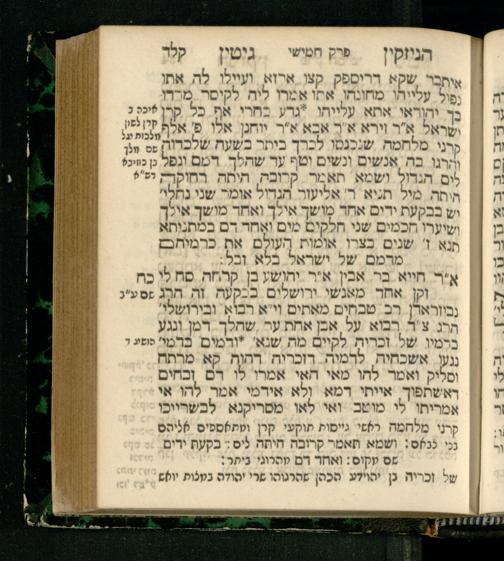 הניזקין פרק חמישי גיטין קלד
איתבר שקא דריספק קצו ארזא ועיילו לה אתו
נפול עלייהו מחונהו אתו אמרו ליה לקיסר מרדו
בך יהודאי אתא עלייהו *גדע בחרי אף כל קרן
ישראל א״ר זירא א״ר אבא א״ר יוחנן אלו פ׳ אלף
קרני מלחמה שנכנסו לכרך ביתר בשעה שלכדוה
והרגו בה אנשים ונשים וטף עד שהלך דמם ונפל
לים הגדול ושמא תאמר קרובה היתה רחוקה
היתה מיל תניא ר׳ אליעזר הגדול אומר שני נחלי׳
יש בבקעת ידים אחד מושך אילך ואחד מושך אילך
ושיערו חכמים שני חלקים מים ואחד דם במתניתא
תנא ז׳ שנים בצרו אומות העולם את כרמיהם
מדמם של ישראל בלא זבל:
א״ר חייא בר אבין א״ר יהושע בן קרחה סח לי
זקן אחד מאנשי ירושלים בבקעה זה הרג
נבוזראדן רב טבחים מאתים וי״א רבוא ובירושלי׳
הרג צ״ד רבוא על אבן אחת עד שהלך דמן ונגע
בדמיו של זכריה לקיים מה שנא׳ *ודמים בדמי׳
נגעו אשכחיה לדמיה דזכריה דהוה קא מרתח
וסליק ואמר להו מאי האי אמרו ליה דם זבחים
דאשתפוך אייתי דמא ולא אידמי אמר להו אי
אמריתו לי מוטב ואי לאו מסריקנא לבשרייכו
קרני מלחמה ראשי גייסות תוקעי קרן ומתאספים אליהם
בני לבאם: ושמא תאמר קרובה היתה לים: בקעת ידים
שם מקום: ואחד דם מהרוגי ביתר:
של זכריה בן יהוידע הכהן שהרגוהו שרי יהודה במצות יואש
איכה ב
קרן לשון
מלכות
שם מלך
בן כוזיבא
רש״א
כח
שם ע״ב
הושיע ד